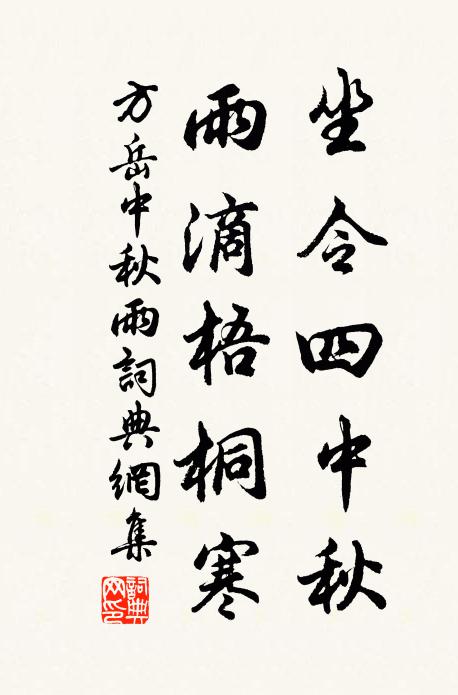 坐令四中秋
雨滴梧桐寒
方岳中秋雨詞典網集
詞典網印